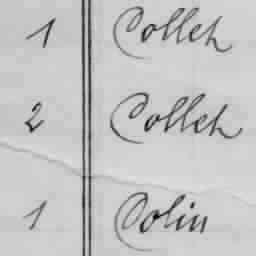 1 Collet
2 Collet
1 Colin